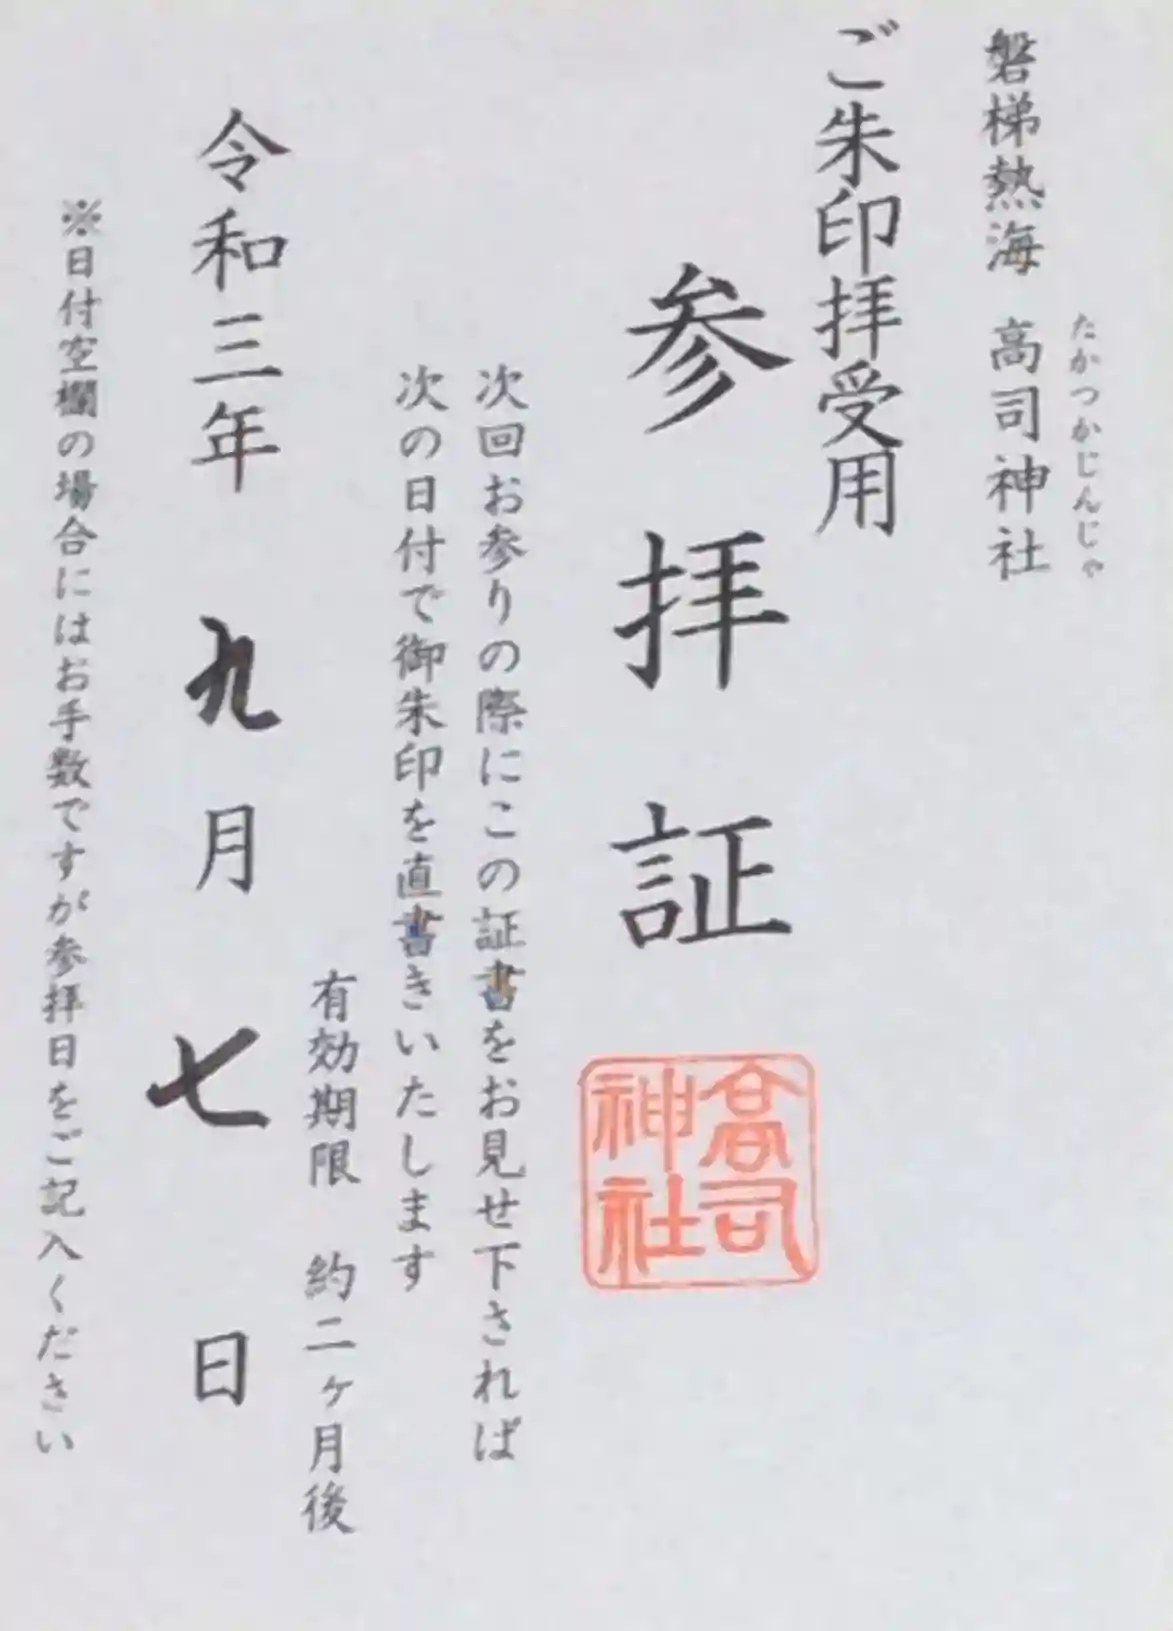 磐梯熱海 高司神社
たかつかじんじゃ
ご朱印拝受用
参拝証
高司神社
次回お参りの際にこの証書をお見せ下されば
次の日付で御朱印を直書きいたします
有効期限 約二ヶ月後
令和三年 九月 七日
※日付空欄の場合にはお手数ですが参拝日をご記入ください